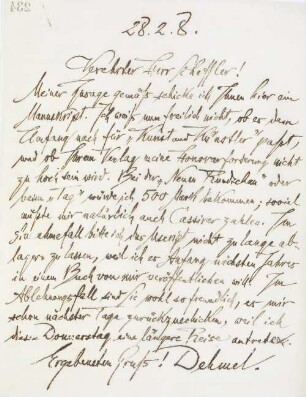 28.2.8.
Verehrter Herr Scheffler!
Meiner Zusage gemäß schicke ich Ihnen hier ein
Manuskript. Ich weiß nun freilich nicht, ob er dem
Umfang nach für „Kunst und Künstler" paßt,
und ob Ihrem Verlag meine Honorarforderung nicht
zu hoch sein wird. Bei der „Neuen Rundschau" oder
beim „Tag" würde ich 500 Mark bekommen; soviel
müßte mir natürlich auch Cassirer zahlen. Im
Annahmefall bitte ich das Mscript nicht zu lange ab-
lagern zu lassen, weil ich es Anfang nächsten Jahres
in einem Buch von mir veröffentlichen will. Im
Ablehnungsfall sind Sie wohl so freundlich, es mir
schon nächster Tage zurückzuschicken, weil ich
diesen Donnerstag eine längere Reise antrete.
Ergebensten Gruß! Dehmel.